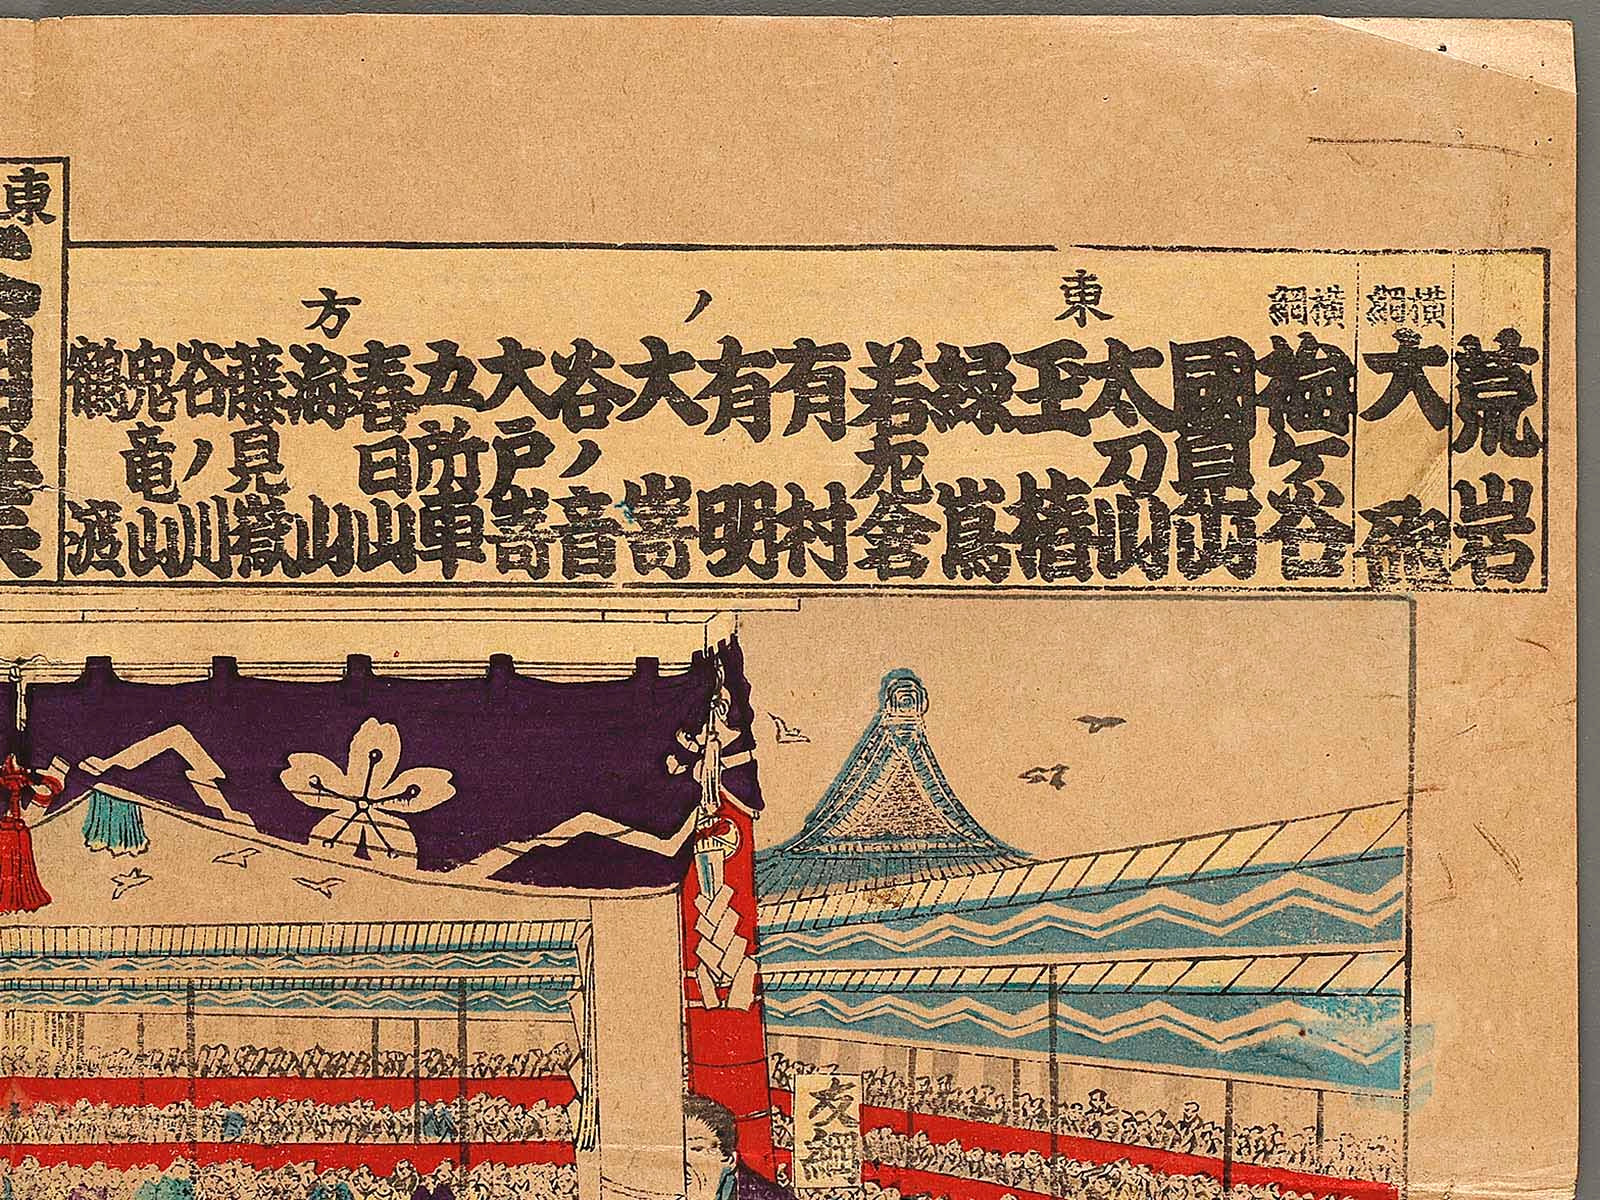 東ノ方
荒岩
横綱
大砲
横綱
梅ヶ谷
國見山
太刀山
玉椿
緑嶌
有村
有明
大嵜
谷ノ音
大戸嵜
五所車
春日山
海山
藤見嶽
谷ノ川
鬼竜山
鶴渡
東
友綱